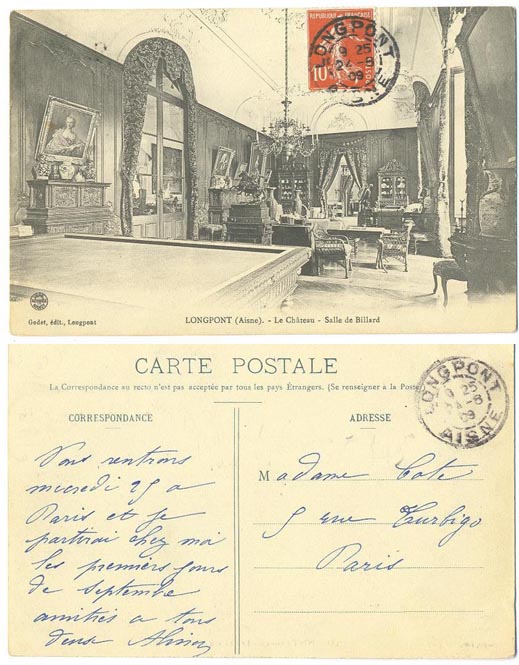 RÉPUBLIQUE FRANÇAISE
10
POSTES
LONGPONT
9 25
24-8
09
AISNE
LONGPONT (Aisne). - Le Château - Salle de Billard
Godet, édit., Longpont
CARTE POSTALE
La Correspondance au recto n'est pas acceptée par tous les pays Étrangers. (Se renseigner à la Poste)
LONGPONT
9 25
24-8
09
AISNE
CORRESPONDANCE
ADRESSE
Vous rentrons
mecredi 25 a
Paris et je
partirai chez moi
les premiers jours
de Septembre
amitiés a tous
deux
Madame Cote
5 rue Turbigo
Paris